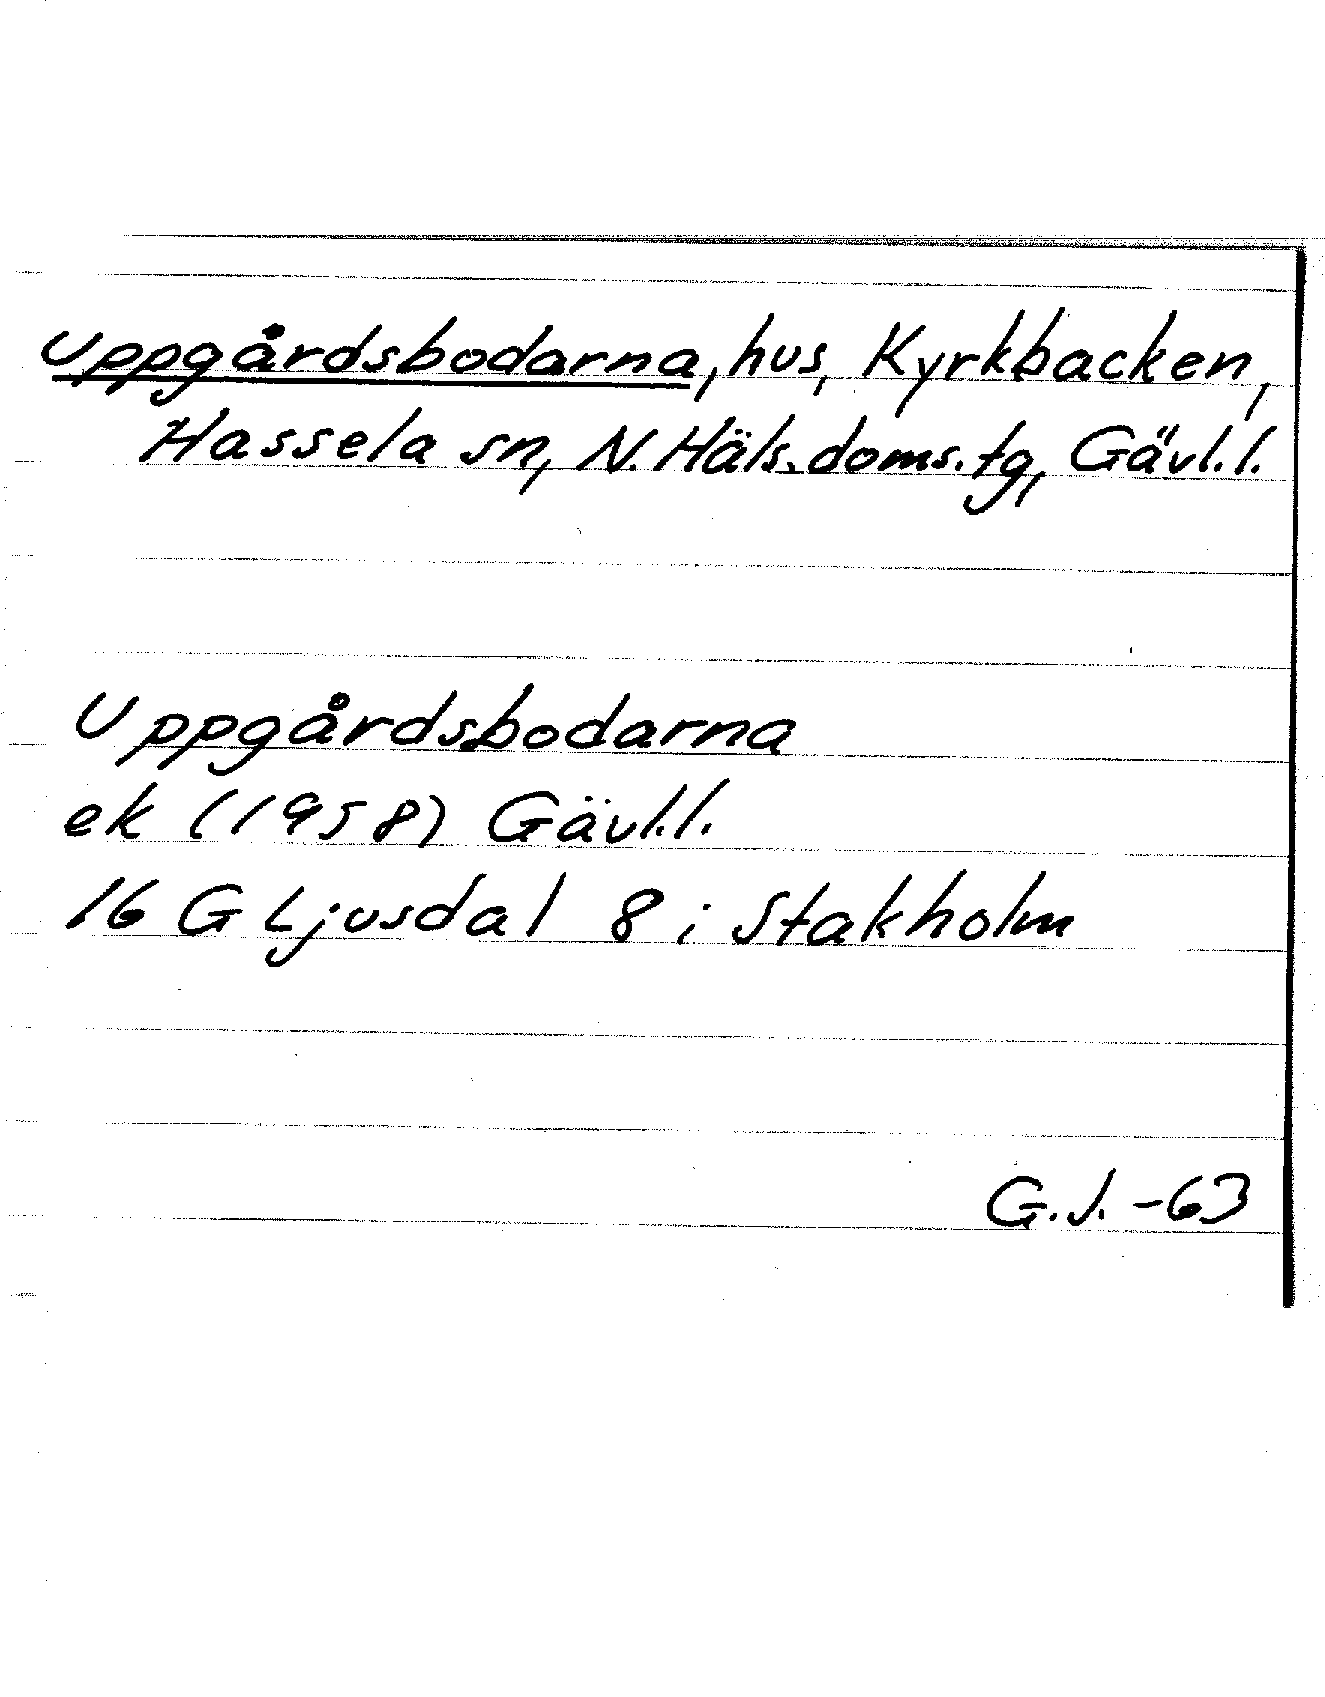 Uppgårdsbodarna, hus, Kyrkbacken,
Hassela sn, N. Häls. doms. tg, Gävl. l.
Uppgårdsbodarna
ek (1958) Gävl. l.
16 G Ljusdal 8 i Stakholm
G.J. -63